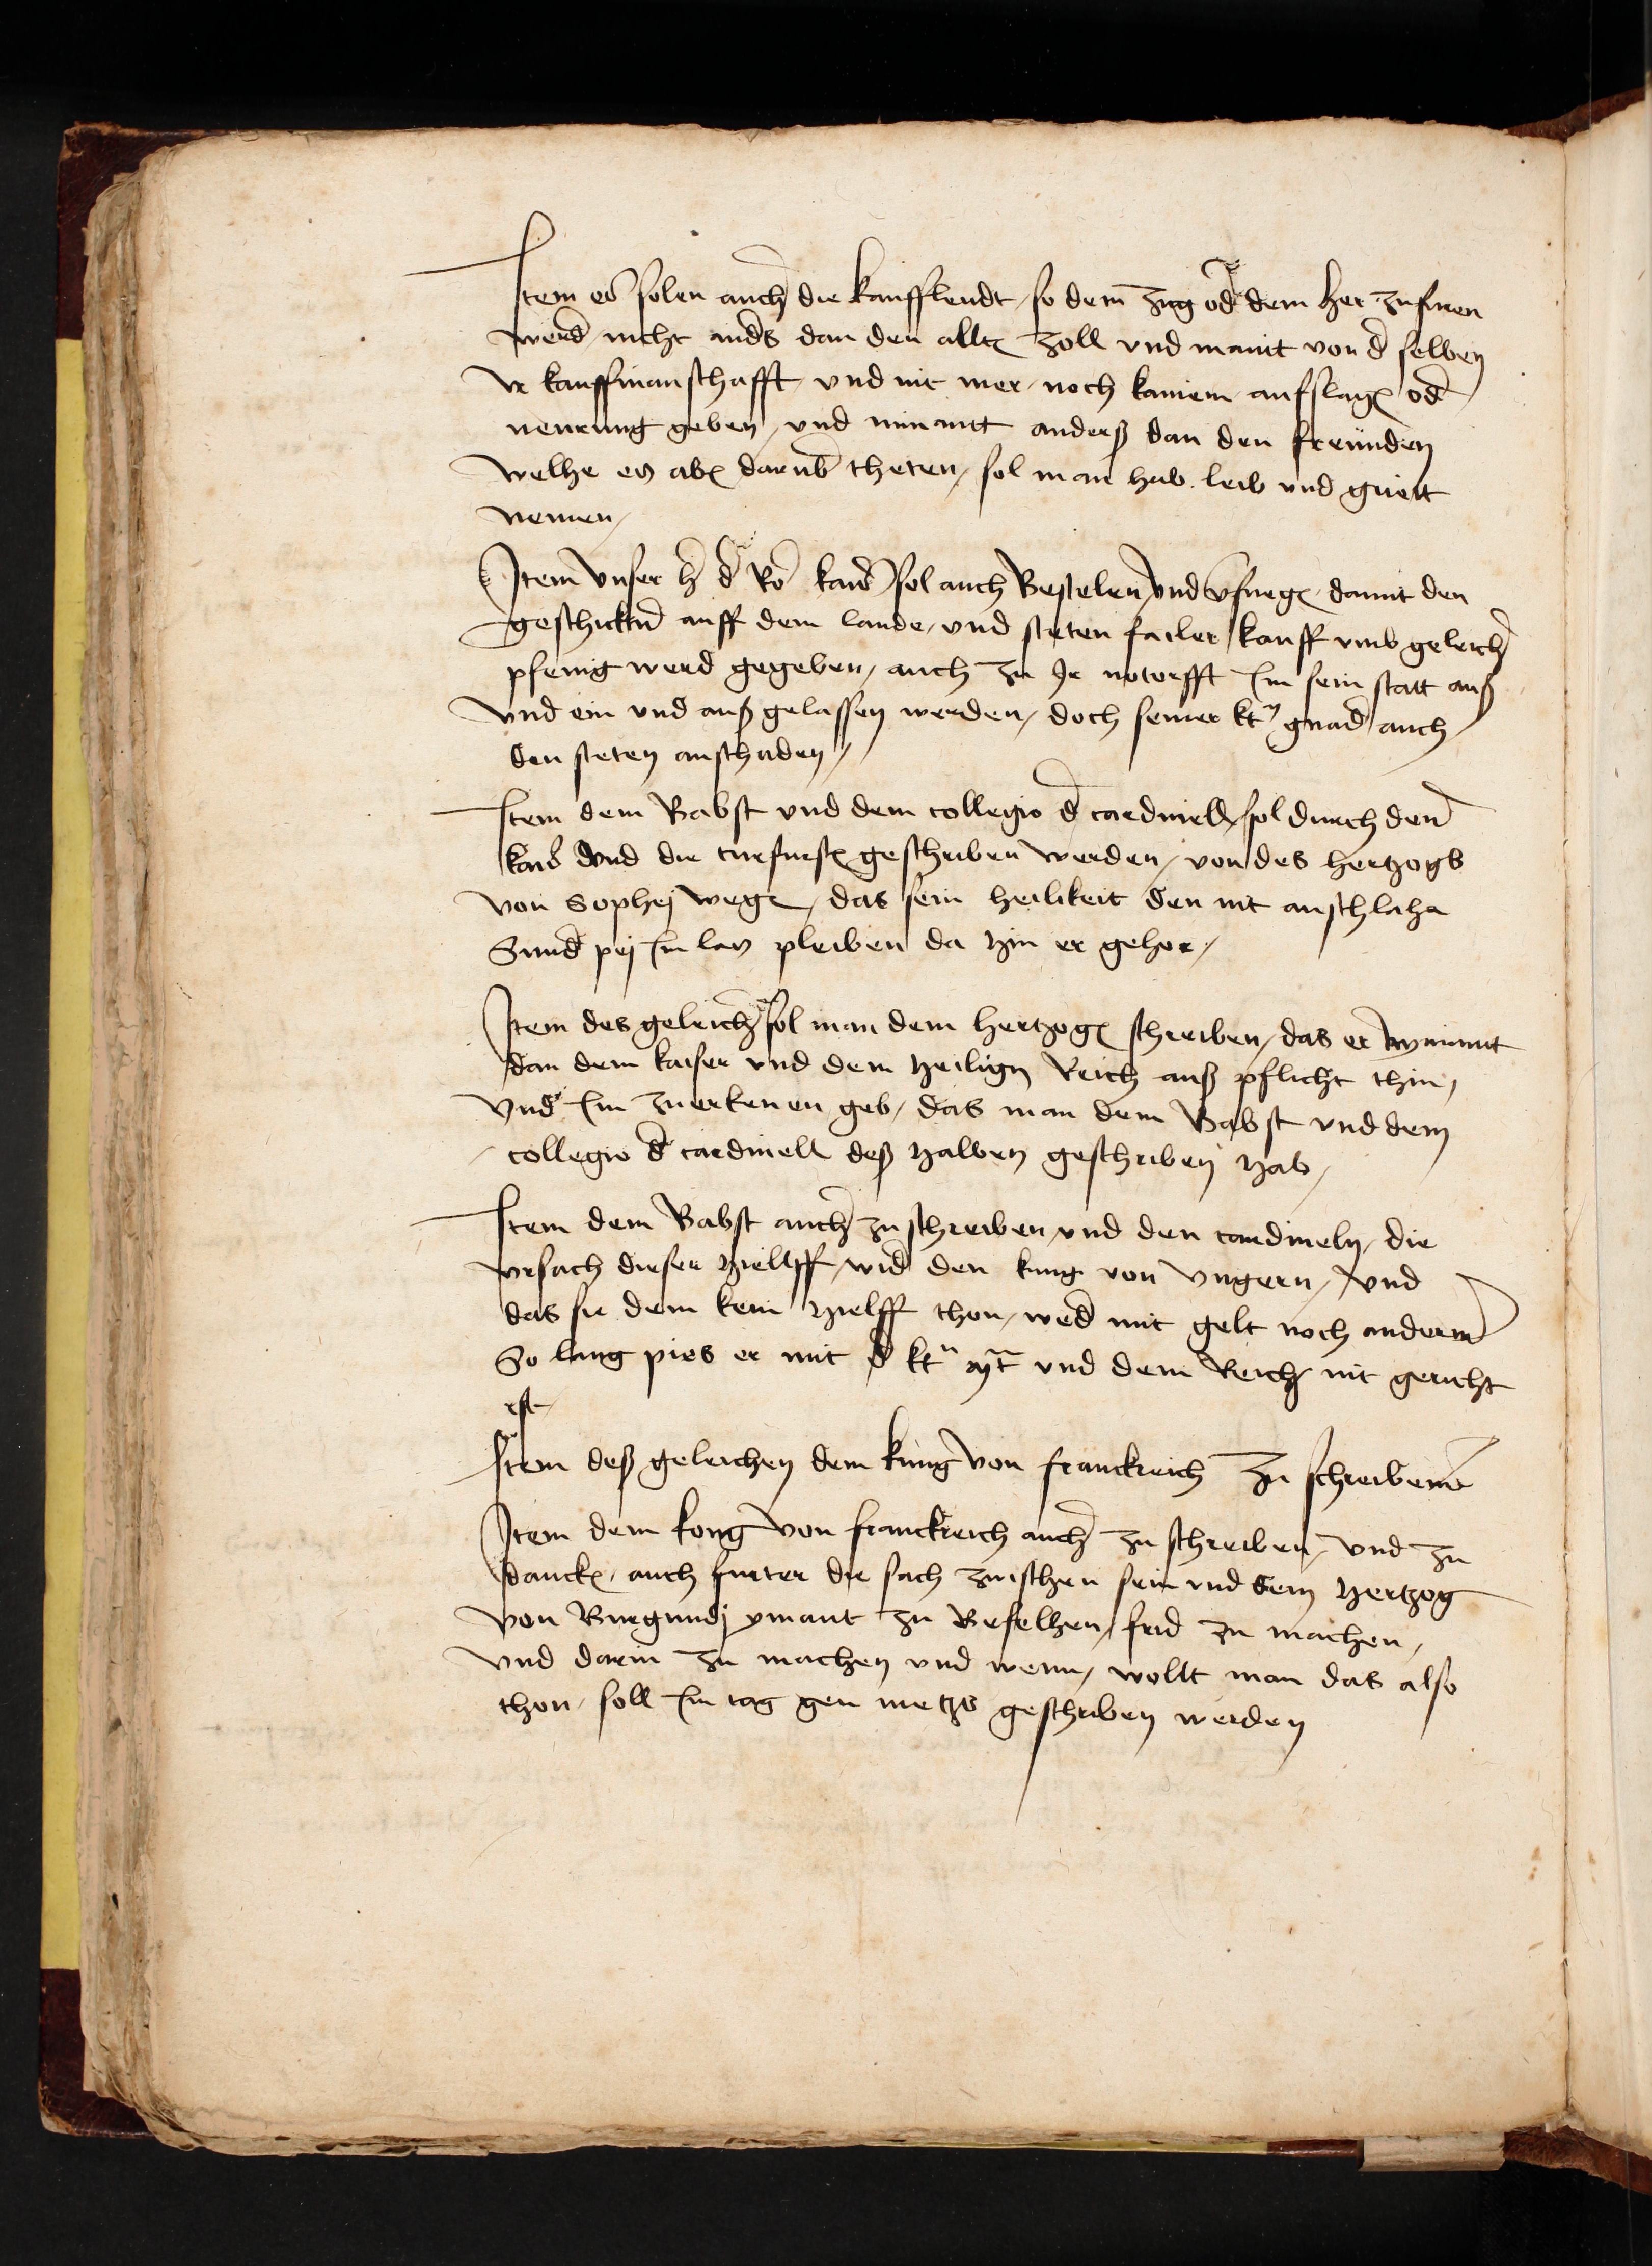 Item es solen auch die kauffleudt / so dem zug od dem her zufuren
werd / nicht anders dan den allten zoll vnd maut von d selben
Ir kauffmanschafft / vnd nit mer / noch kainem aufslag od
neurung geben / vnd nimantt anders dan den freunden
welhe es aber darub theten / sol man hab leib vnd guett
nemen /
Item vnser h d Ro kaiß sol auch Bestelen vnd vfuegen damit den
geschickten auff dem lande / vnd steten failer kauff vmb geleich
pfenig werd gegeben / auch zu Ir notorfft Im sein statt auß
vnd ein vnd auß gelassen werden / doch seiner kt gnad auch
den steten anschaden /
Item dem Babst vnd dem collegio d cardinell sol durch den
kaiß vnd die curfursten geschriben werden / von des hertzogs
von Sophej wegen / das sein heilikeit den nit anschlaha
Sund pej Im las pleiben da hin er gehor /
Item des geleich sol man dem hertzogen schreiben / das er nymant
dan dem kaiser vnd dem heilign Reich auß pflicht thin /
Vnd Im zuerkenen geb / das man dem Babst vnd dem
collegio d cardinell deß halben geschriben hab /
Item dem Babst auch zu schreiben vnd den cardineln / die
vrsach dieser hielff / wid den kung von vngern / vnd
das sie dem kein hielff thon / wed mit gelt noch anderm
So lang pies er mit d kt mt vnd dem Reich nit gericht
ist
Item deß geleichen dem kung von franckreich zu schreiben
Item dem kong von franckreich auch zu schreiben / vnd zu
dancken / auch furter die sach zwischen sein vnd dem hertzog
von Burgundj ymant zu Befelhen / frid zu machen /
vnd darin zu machen vnd wenn / wollt man das also
thon / soll Im tag gen metzs geschriben werden